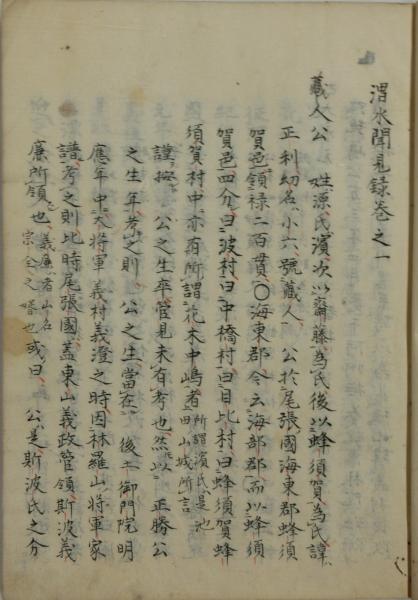 渭水聞見録巻之一
蔵人公　姓源氏濱次以齋藤為氏後以蜂須賀為氏諱
正利幼名小六號蔵人　公於尾張國海東郡蜂須
賀邑領禄二百貫〇海東郡今云海部郡而以蜂須
賀邑四分曰波村曰中橋村曰目比村曰蜂須賀蜂
須賀村中亦有所謂花木中嶋者所謂濱氏是池田山城所言
謹按　公之生卒管見未有考也然以　正勝公
之生年考之則　公之生當在　後土御門院明
應年中大将軍義村義澄之時因林羅山将軍家
譜考之則比時尾張國蓋東山義政管領斯波義
廉所領也義廉者山名宗全之婿也或曰　公是斯波氏之分